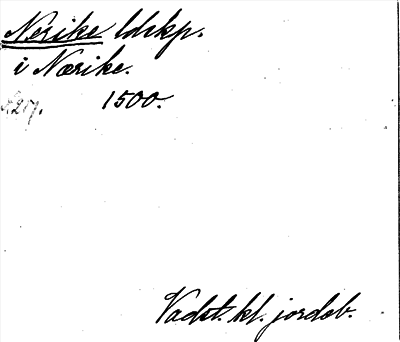 Nerike ldskp.
i Nærike.
1500.
Vadst. kl. jordeb.